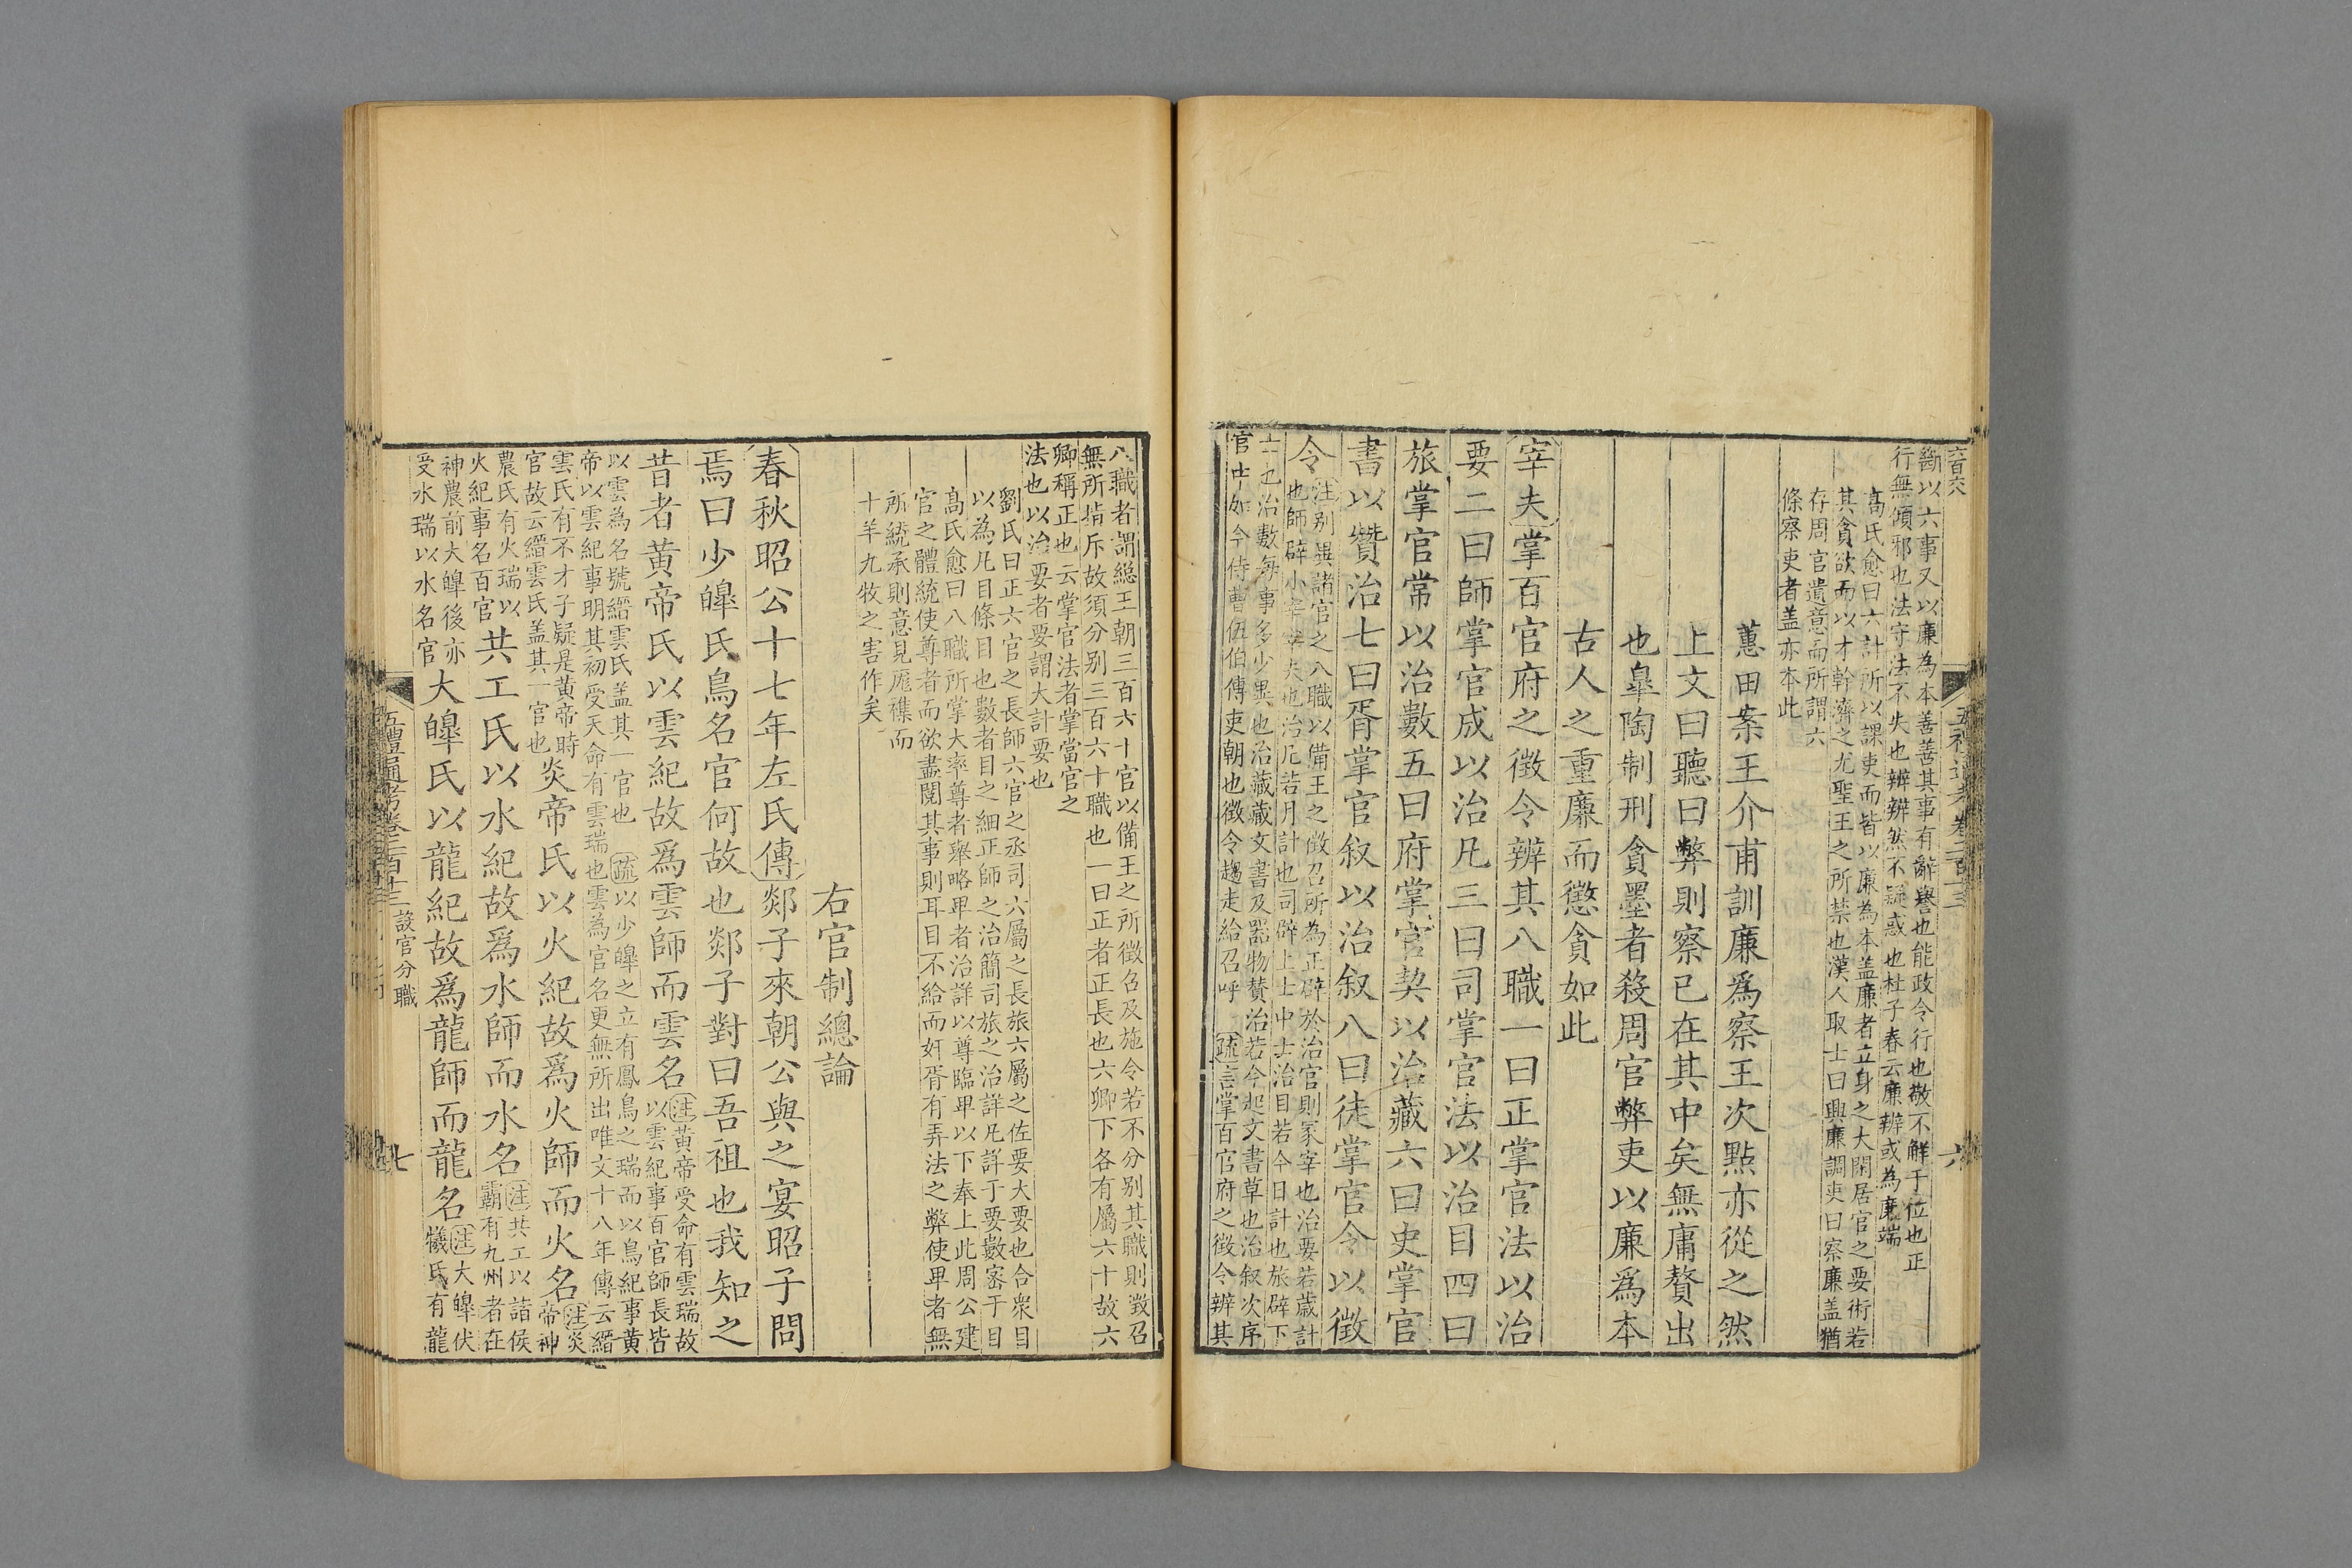 斷以六事又以廉為本善善其事有辭譽也能政令行也敬不解于位也正
行無傾邪也法守法不失也辨辨然不疑惑也杜子春云廉辨或為廉端
高氏愈曰六計所以課吏而皆以廉為本盖廉者立身之大閑居官之要術若
其貪欲而以才幹濟之尤聖王之所禁也漢人取士曰興廉調吏曰察廉盖猶
存周官遺意而所謂六
條察吏者盖亦本此
蕙田案王介甫訓廉爲察王次點亦從之然
上文曰聽曰弊則察已在其中矣無庸贅出
也臯陶制刑貪墨者殺周官弊吏以廉爲本
古人之重廉而懲貪如此
宰夫掌百官府之徵令辨其八職一曰正掌官法以治
要二曰師掌官成以治凡三曰司掌官法以治目四曰
旅掌官常以治數五曰府掌官契以治藏六曰史掌官
書以贊治七曰胥掌官叙以治叙八曰徒掌官令以徵
令
注別異諸官之八職以備王之徵召所為正辟於治官則冢宰也治要若歲計
也師辟小宰宰夫也治凡若月計也司辟上士中士治目若今日計也旅辟下
士也治數每事多少異也治藏藏文書及器物贊治若今起文書草也治叙次序
官中如今侍曹伍伯傳吏朝也徵令趨走給召呼 疏言掌百官府之徵令辨其
五禮通考卷二百十三
六
八職者謂總王朝三百六十官以備王之所徵召及施令若不分别其職則徵召
無所指斥故須分别三百六十職也一曰正者正長也六卿下各有屬六十故六
卿稱正也云掌官法者掌當官之
法也以治要者要謂大計要也
劉氏曰正六官之長師六官之丞司六屬之長旅六屬之佐要大要也合衆目
以為凡目條目也數者目之細正師之治簡司旅之治詳凡詳于要數密于目
高氏愈曰八職所掌大率尊者舉略卑者治詳以尊臨卑以下奉上此周公建
官之體統使尊者而欲盡閱其事則耳目不給而奸胥有弄法之弊使卑者無
所統承則意見龎襍而
十羊九牧之害作矣
右官制總論
春秋昭公十七年左氏傳郯子來朝公與之宴昭子問
焉曰少皥氏鳥名官何故也郯子對曰吾祖也我知之
昔者黄帝氏以雲紀故爲雲師而雲名
注黄帝受命有雲瑞故
以雲紀事百官師長皆
以雲為名號縉雲氏盖其一官也 疏以少皥之立有鳳鳥之瑞而以鳥紀事黄
帝以雲紀事明其初受天命有雲瑞也雲為官名更無所出唯文十八年傳云縉
雲氏有不才子疑是黄帝時
官故云縉雲氏盖其一官也
炎帝氏以火紀故爲火師而火名
注炎
帝神
農氏有火瑞以
火紀事名百官
共工氏以水紀故爲水師而水名
注共工以諸侯
霸有九州者在
神農前大皥後亦
受水瑞以水名官
大皥氏以龍紀故爲龍師而龍名
注大皥伏
犧氏有龍
五禮通考卷二百十三 設官分職
七